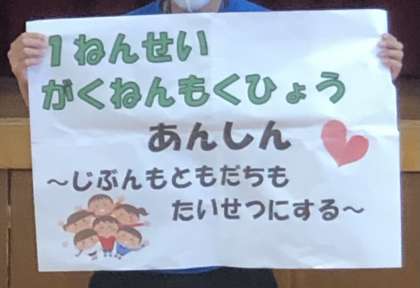 1ねんせい
がくねんもくひょう
あんしん
～じぶんもともだちも
たいせつにする～